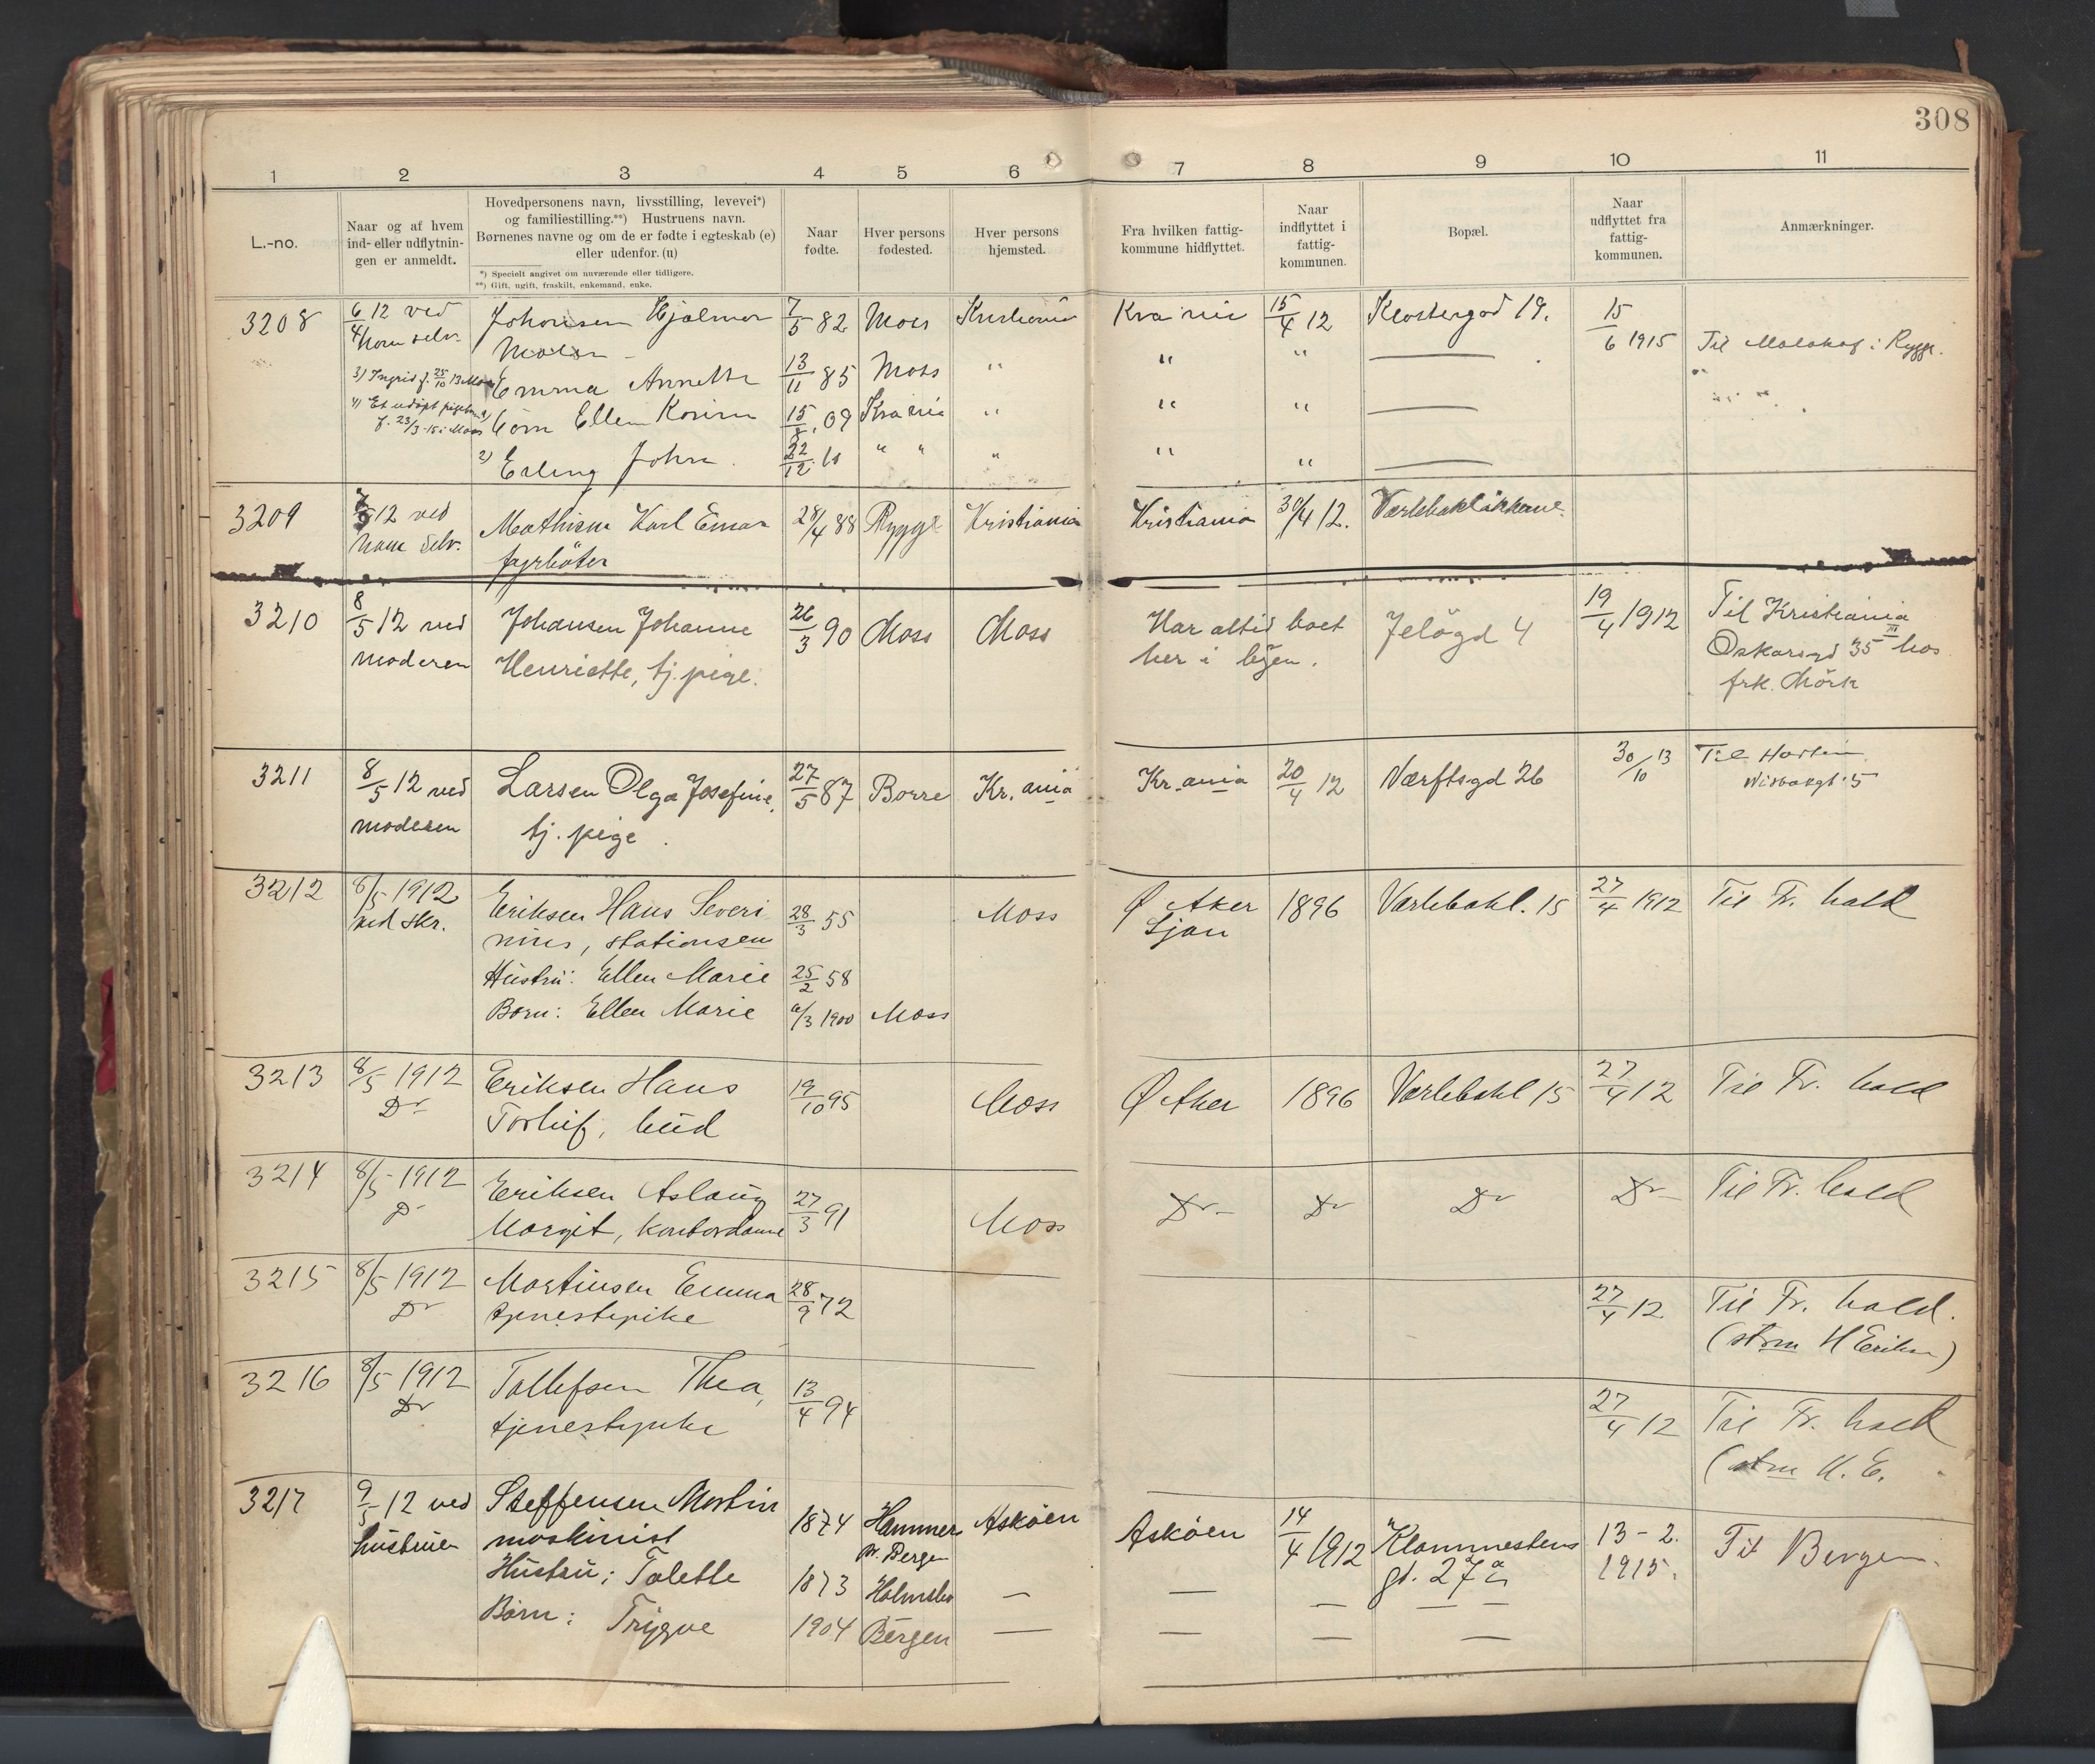 308
1 2 3 4 5 6 7 8 9 10 11
L.-no.
Naar og af hvem
ind- eller udflytnin-
gen er anmeldt.
Hovedpersonens navn, livsstilling, levevei*)
og familiestilling.**) Hustruens navn.
Børnenes navne og om de er fødte i egteskab (e)
eller udenfor. (u)
*) Specielt angivet om nuværende eller tidligere.
**) Gift, ugift, fraskilt, enkemand, enke.
Naar
fødte.
Hver persons
fødested.
Hver persons
hjemsted.
Fra hvilken fattig-
kommune hidflyttet.
Naar
indflyttet i
fattig-
kommunen.
Bopæl.
Naar
udflyttet fra
fattig-
kommunen.
Anmærkninger.
3208 6/4 12 ved Johansen Hjalmar 7/5 82 Moss Kristiania Kra nia 15/4 12 Klostergad 19. 15/6 1915 Til Malakof i Rygge.
ham selv. Maler -
3) Ingrid f. 25/10 13 Moss Emma Annette 13/11 85 Moss " " " —
4) Et udøpt pigebarn
f. 23/3-15 i Moss 1) Børn Ellen Karin 15/8 09 Kra nia " " " —
2) Erling John. 22/12 10 " " " " " —
3209 7/5 12 ved Mathisen Karl Einar 28/4 88 Rygge Kristiania Kristiania 30/4 12. Værlebakløkkene.
ham selv. fyrbøter
3210 8/5 12 ved Johansen Johanne 26/3 90 Moss Moss Har altid boet Jeløgd 4 19/4 1912 Til Kristiania
moderen Henriette, tj. pige. her i byen. Oskarsgd 35 III hos
frk. Mörk
3211 8/5 12 ved Larsen Olga Josefine, 27/5 87 Borre Kr. ania Kr. ania 20/4 12 Værftsgd 26 30/10 13 Til Horten
moderen tj. pige.
3212 8/5 1912 Eriksen Hans Severi 28/3 55 Moss Ø Aker 1896 Værlebakl. 15 27/4 1912 Til Fr. hald
ved skr. nius, stationsen Ljan
Hustru: Ellen Marie 25/2 58
Barn: Ellen Marie /3 1900 Moss
3213 8/5 1912 Eriksen Hans 19/10 95 Moss Ø Aker 1896 Værlebakl 15 27/4 12 Til Fr. hald
Do Torleif, bud
3214 8/5 1912 Eriksen Aslaug 27/3 91 Moss Do Do Do Do Til Fr. hald
Do Margit, kontordame
3215 8/5 1912 Martinsen Emma 28/9 72 27/4 12 Til Fr. hald.
Do tjenestepike (stm H Eriksen)
3216 8/5 1912 Tollefsen Thea, 13/4 94 27/4 12 Til Fr. hald
Do tjenestepike (stm H. E.
3217 9/5 12 ved Steffensen Martin 1874 Hammer Askøen Askøen 14/4 1912 Klommestens 13-2. Til Bergen.
hustruen maskinist pr. Bergen gt. 27 a 1915.
Hustru: Talette 1873 Holmsbo — — — — —
Børn: Trygve 1904 Bergen — — — —